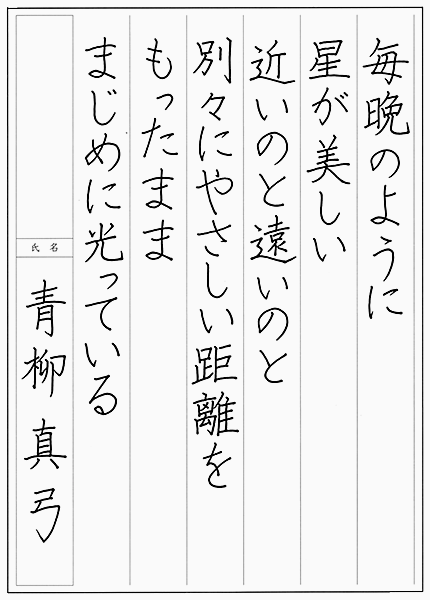 毎晩のように
星が美しい
近いのと遠いのと
別々にやさしい距離を
もったまま
まじめに光っている
氏名
青柳真弓